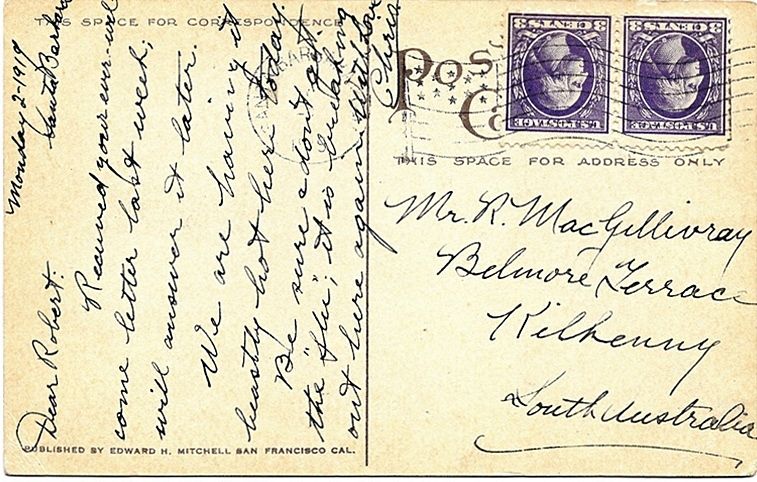 THIS SPACE FOR CORRESPONDENCE
Monday 2-1919
Santa Barbara
Dear Robert:
Received your ever-wel
come letter last week;
will answer it later.
We are having it
beastly hot here today.
Be sure & don't get
the "flu"; it is breaking
out here again. With Love
Chris
PUBLISHED BY EDWARD H. MITCHELL SAN FRANCISCO CAL.
Pos
Ca
3 CENTS 3
U.S. POSTAGE
3 CENTS 3
U.S. POSTAGE
THIS SPACE FOR ADDRESS ONLY
Mr. R. MacGillivray
Belmore Terrace
Kilkenny
South Australia